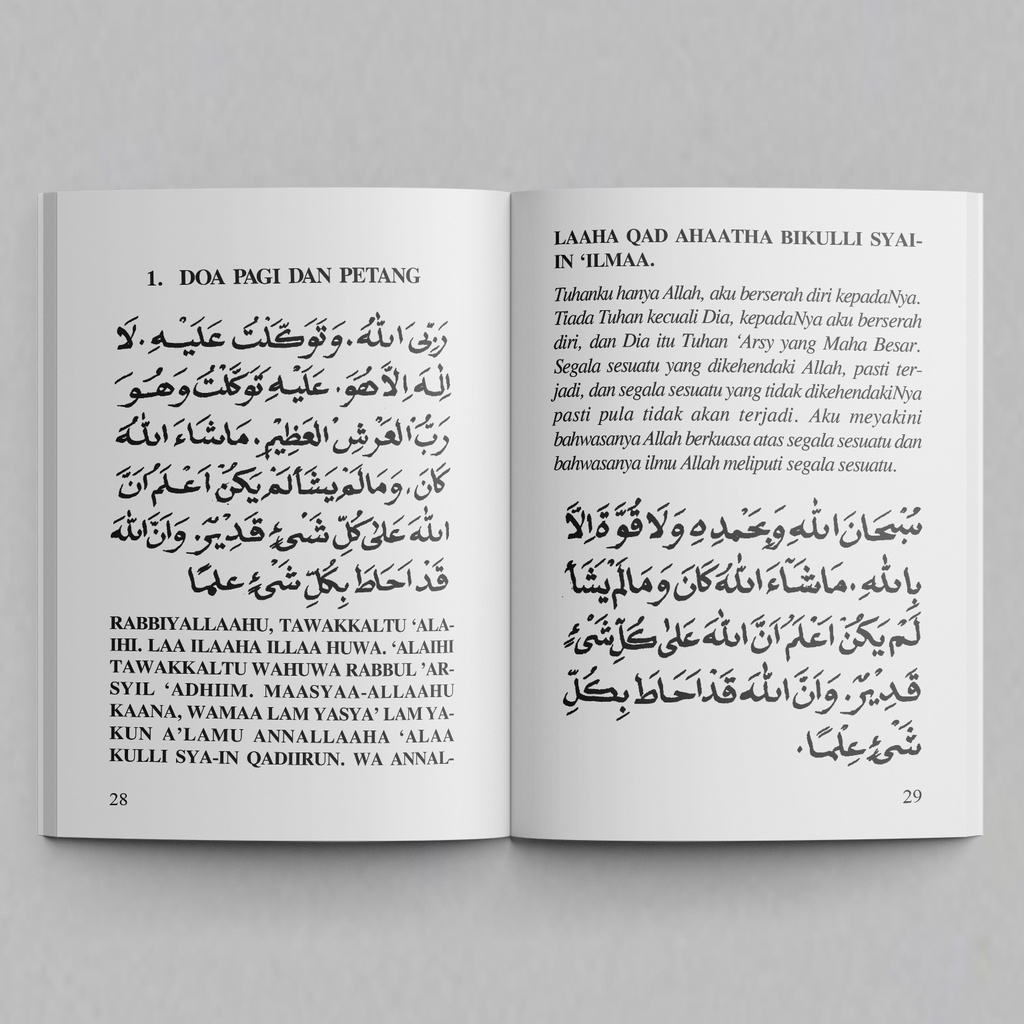 1. DOA PAGI DAN PETANG
رَبِّيَ اللّٰهُ. وَتَوَكَّلْتُ عَلَيْهِ. لَا
اِلٰهَ اِلَّا هُوَ. عَلَيْهِ تَوَكَّلْتُ وَهُوَ
رَبُّ الْعَرْشِ الْعَظِيْمِ. مَاشَاءَ اللّٰهُ
كَانَ. وَمَا لَمْ يَشَأْ لَمْ يَكُنْ اَعْلَمُ اَنَّ
اللّٰهَ عَلٰى كُلِّ شَيْءٍ قَدِيْرٌ. وَاَنَّ اللّٰهَ
قَدْ اَحَاطَ بِكُلِّ شَيْءٍ علمًا
RABBIYALLAAHU, TAWAKKALTU ‘ALA-
IHI. LAA ILAAHA ILLAA HUWA. ‘ALAIHI
TAWAKKALTU WAHUWA RABBUL ’AR-
SYIL ‘ADHIIM. MAASYAA-ALLAAHU
KAANA, WAMAA LAM YASYA’ LAM YA-
KUN A’LAMU ANNALLAAHA ‘ALAA
KULLI SYA-IN QADIIRUN. WA ANNAL-
28
LAAHA QAD AHAATHA BIKULLI SYAI-
IN ‘ILMAA.
Tuhanku hanya Allah, aku berserah diri kepadaNya.
Tiada Tuhan kecuali Dia, kepadaNya aku berserah
diri, dan Dia itu Tuhan ‘Arsy yang Maha Besar.
Segala sesuatu yang dikehendaki Allah, pasti ter-
jadi, dan segala sesuatu yang tidak dikehendakiNya
pasti pula tidak akan terjadi. Aku meyakini
bahwasanya Allah berkuasa atas segala sesuatu dan
bahwasanya ilmu Allah meliputi segala sesuatu.
سُبْحَانَ اللّٰهِ وَبِحَمْدِهِ وَلَا قُوَّةَ اِلَّا
بِاللّٰهِ. مَاشَاءَ اللّٰهُ كَانَ وَمَالَمْ يَشَأْ
لَمْ يَكُنْ اَعْلَمُ اَنَّ اللّٰهَ عَلٰى كُلِّ شَيْءٍ
قَدِيْرٌ. وَاَنَّ اللّٰهَ قَدْ اَحَاطَ بِكُلِّ
شَيْءٍ عِلْمًا.
29